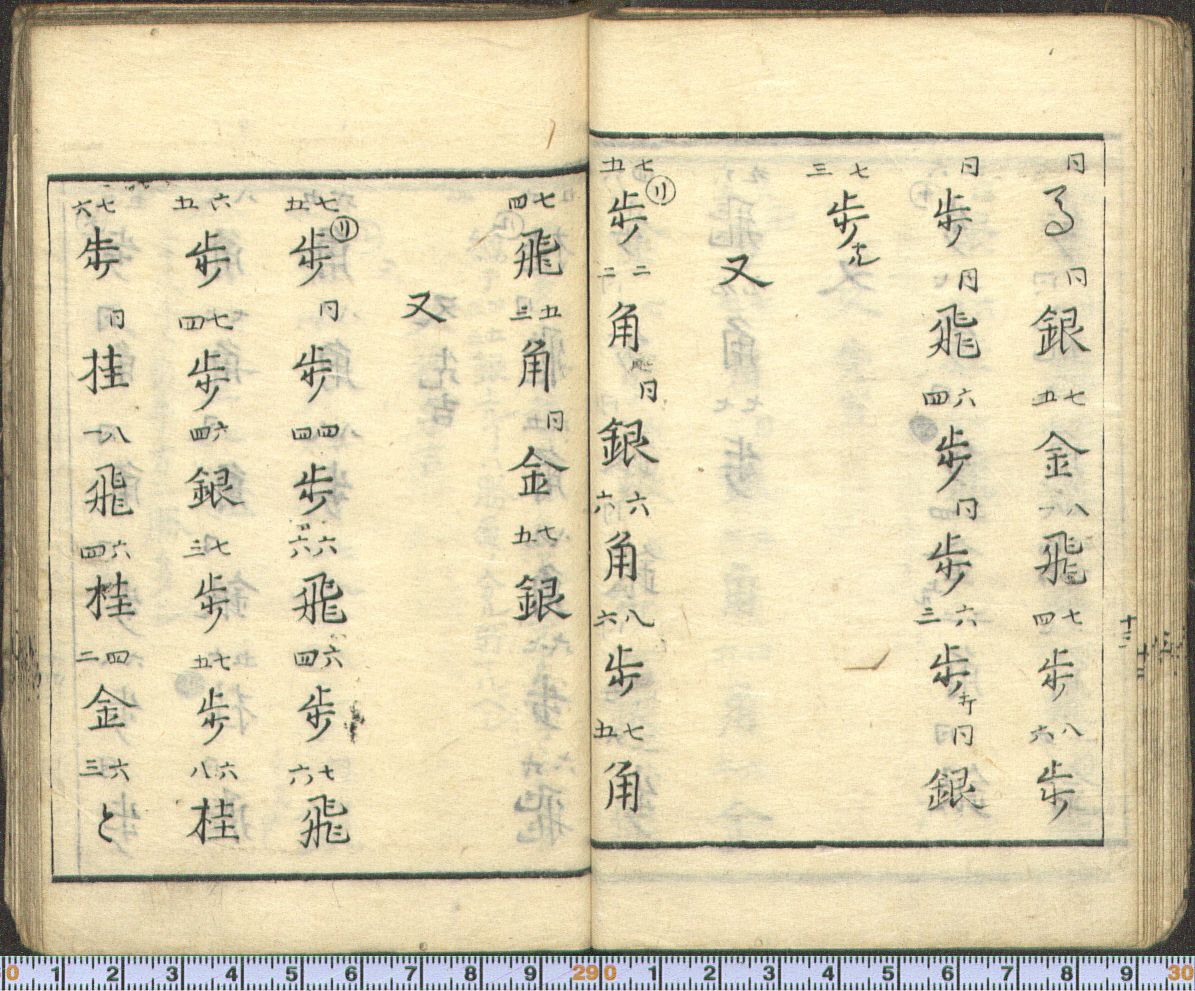 同馬同銀七五金八一飛七四歩八六歩
同歩同飛六四歩同歩六三歩打同銀
七三歩成
又
七五リ歩二二角成同銀六六角八六歩七五角
七四飛五三角同金七五銀
又
七五リ歩同歩四四歩六六飛六四歩七六飛
六五歩七四歩六四銀七三歩七五歩六八桂
七六歩同桂八一飛六四桂四二金六三と